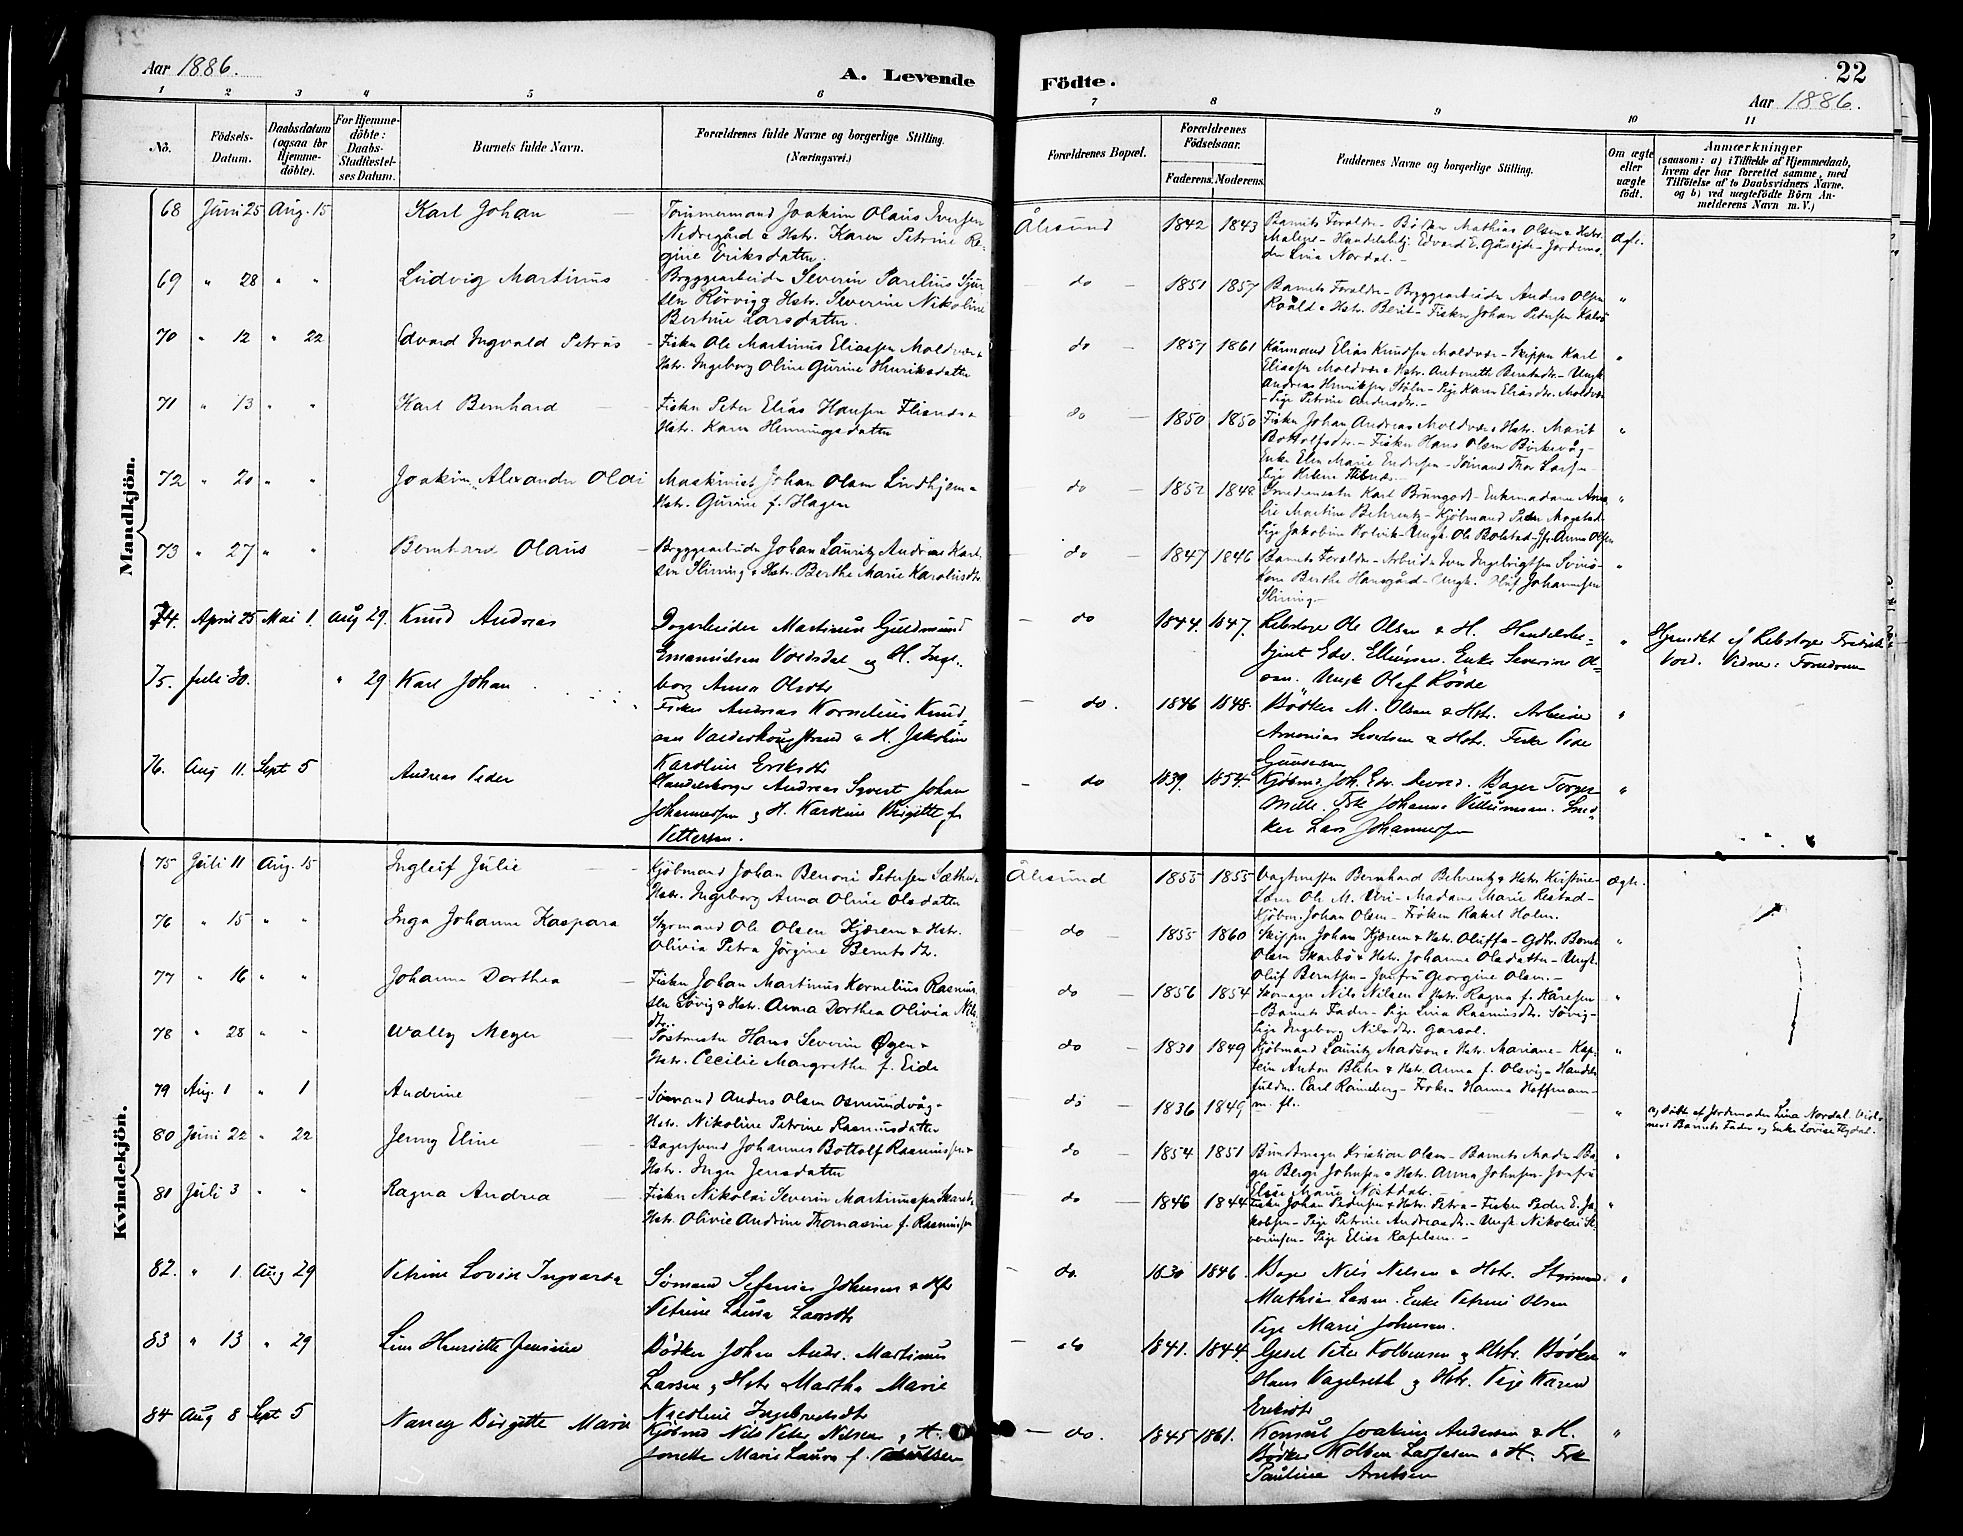 Aar 1886.
A. Levende
Födte.
22
Aar 1886.
1 2 3 4 5 6 7 8 9 10 11
No.
Födsels-Datum.
Daabsdatum (ogsaa for Hjemme-döbte).
For Hjemme-döbte: Daabs-Stadfæstel-ses Datum.
Barnets fulde Navn.
Forældrenes fulde Navne og borgerlige Stilling. (Næringsvei.)
Forældrenes Bopæl.
Forældrenes Födselsaar.
Faderens. Moderens.
Faddernes Navne og borgerlige Stilling.
Om ægte eller uægte födt.
Anmærkninger
(saasom: a) i Tilfælde af Hjemmedaab, hvem der har forrettet samme, med Tilföielse af to Daabsvidners Navne, og b) ved uægtefödte Börn An-melderens Navn m. V.)
Mandkjön.
68 Juni 25 Aug. 15 Karl Johan
Tömmermand Joakim Olaus Iversen
Nedregård & Hstr. Karen Petrine Re-
gine Eriksdatter.
Ålesund 1842 1843
Barnets Forældre - Mathias Olsen & Hstr.
Malene - Edvard E. Gåseide - Jordemo-
der Lina Nordal. -
Ægte.
69 " 28 " " Ludvig Martinus
Bryggearbeider Severin Parelius Sjur-
sen Rörvig & Hstr. Severine Nikoline
Bertine Larsdatter.
do 1851 1857
Barnets Forældre - Bryggearbeider Anders Olsen
Roald & Hstr. Berit - Fisker Johan Petersen
"
70 " 12 " 22 Edvard Ingvald Petrus
Fisker Ole Martinus Eliassen Moldvær &
Hstr. Ingeborg Oline Gurine Henriksdatter
do 1857 1861
Kårmand Elias Knudsen Moldvær - Skipper Karl
Eliassen Moldvær & Hstr. Antonette Berntsdtr. - Ungk.
Andreas Henriksen - Pige Karen Eliasdtr. Moldvær
- Pige Petrine Andersdtr. -
"
71 " 13 " " Karl Bernhard
Fisker Peter Elias Hansen Flisnes &
Hstr. Karen Henningsdatter
do 1850 1850
Fisker Johan Andreas Moldvær & Hstr. Marit
Bottolfsdtr. - Fisker Hans Olsen Birkevåg -
Enke Elen Marie Endresen - Sömand Thor Larsen -
Pige Helene
"
72 " 20 " " Joakim Alexander Olai
Maskinist Johan Olsen Lindhjem &
Hstr. Gurine f. Hagen
do 1852 1848
Smedmester Karl Brungodt - Enkemadame Ama-
lie Martine Behrentz - Kjöbmand Peder Mogstad -
Pige Jakobine Kolvik - Ungk. Ole Bolstad - Jfr. Anna Olsen
"
73 " 27 " " Bernhard Olaus
Bryggearbeider Johan Lauritz Andreas Karl-
sen Slinning & Hstr. Berthe Marie Karolusdtr
do 1847 1846
Barnets Forældre - Arbeider Iver Ingebrigtsen
Kone Berthe Hansgård - Ungk. Oluf Johannesen
Slinning -
"
74. April 25 Mai 1. Aug 29. Knud Andreas
Dagarbeider Martinus Guldmund
Emanuelsen Voldsdal og H. Inge-
borg Anna Olsdtr
do 1844. 1847.
Rebslager Ole Olsen & H. Handelsbe-
tjent Edv. Ellingsen. Enke Severine Ol-
sen. Ungk Olaf Rövde
"
Hjemdöbt af Rebslager Fredrik
Vold. Vidne: Forældrene
75. Juli 30. " 29 Karl Johan
Fisker Andreas Kornelius Knud-
sen Valderhougstrand & H. Jakobine
Karoline Eriksdtr
do. 1846 1848.
Bödker M. Olsen & Hstr. Arbeider
Ananias Sivertsen & Hstr. Fisker Peder
Gundersen
"
76. Aug 11. Sept 5 Andreas Peder
Handelsborger Andreas Syvert Johan
Johannessen og H. Karoline Birgitte f.
Pettersen.
do 1839. 1854.
Kjöbmd Joh. Edv. Devold. Bager Torger
Mille. Frk Johanna Villumsen. Sned-
ker Lars Johannessen
"
Kvindekjön.
75 Juli 11 Aug. 15 Ingleif Julie
Kjöbmand Johan Benoni Petersen Sæther &
Hstr. Ingeborg Anna Oline Olsdatter
Ålesund 1855 1855
Vagtmester Bernhard Behrentz & Hstr. Kristine -
Ole M. Uri - Madame Marie Restad -
Kjöbm. Johan Olsen - Fröken Rakel Holm.
Ægte.
76 " 15 " " Inga Johanne Kaspara
Styrmand Ole Olsen Kjærem & Hstr.
Olivia Petra Jörgine Berntsdtr.
do 1855 1860
Skipper Johan Kjærem & Hstr. Oluffa - Gdbr. Bernt
Olsen Skarbö & Hstr. Johanne Olsdatter - Ungk.
Oluf Berntsen - Jomfru Georgine Olsen. -
"
77 " 16 " " Johanna Dorthea
Fisker Johan Martinus Kornelius Rasmus-
sen Sövig & Hstr. Anna Dorthea Olivia Nils-
dtr.
do 1856 1854
Skomager Nils Nilsen & Hstr. Ragna f. Kåresen
- Barnets Fader - Pige Lina Rasmusdtr. Sövig -
Pige Ingeborg Nilsdtr. Garsol.
"
78 " 28 " " Wally Meyer
Postmester Hans Severin Øyen &
Hstr. Cecilie Margrethe f. Eide
do 1830 1849
Kjöbmand Lauritz Madsen & Hstr. Mariane - Kap-
tein Anton Blihr & Hstr. Anna f. Olsvig - Handels-
fuldm. Carl Rönneberg - Fröken Hanna Hoffmann -
m. fl.
"
79 Aug. 1 " 1 Andrine
Sömand Anders Olsen Osmundvåg &
Hstr. Nikoline Petrine Rasmusdatter
do 1836 1849
"
a) Döbt af Jordemoder Lina Nordal. Vid-
ner: Barnets Fader og Enke Lovise Flydal.
80 Juni 22 " 22 Jenny Eline
Bagersvend Johannes Bottolf Rasmussen &
Hstr. Inga Jensdatter
do 1854 1851
Bundtmager Kristian Olsen - Barnets Moder - Ba-
ger Bergs Johnsen & Hstr. Anna Johnsen - Jomfru
Elise Marie Nöstdal. -
"
81 Juli 3 " " Ragna Andrea
Fisker Nikolai Severin Martinussen Skaret &
Hstr. Olivie Andrine Thomasine f. Rasmussen
do 1846 1844
Fisker Johan Pedersen & Hstr. Petra - Fisker Peder E. Ja-
kobsen - Pige Petrine Andreasdtr. - Ungk Nikolai Se-
verinsen - Pige Elisa Rafelsen. -
"
82. " 1. Aug 29 Petrine Lovise Ingvarda
Sömand Sefanias Johnsen & Hstr
Petrine Laura Larsdtr
do. 1830 1846.
Bager Nils Nilsen & Hstr. Styrmand
Mathias Larsen. Enke Petrine Olsen
Pige Marie Johnsen.
"
83 " 13 " 29 Lina Henriette Jensine
Bödker Johan Andr. Martinus
Larsen og Hstr Martha Marie
Nicoline Ingebretsdtr
do 1841. 1844.
Gesel Peter Kolbensen og Hstr. Bödker
Hans Vagelseth og Hstr. Pige Karen
Eriksdtr
"
84 Aug 8 Sept 5 Nancy Birgitte Marie
Kjöbmd Nils Peter Nilsen og H.
Jonette Marie Laura f. Poulsen
do. 1845 1861.
Konsul Joakim Andersen & H.
Bödker Kolben Larssen & H. Frk
Pauline Arntsen
"